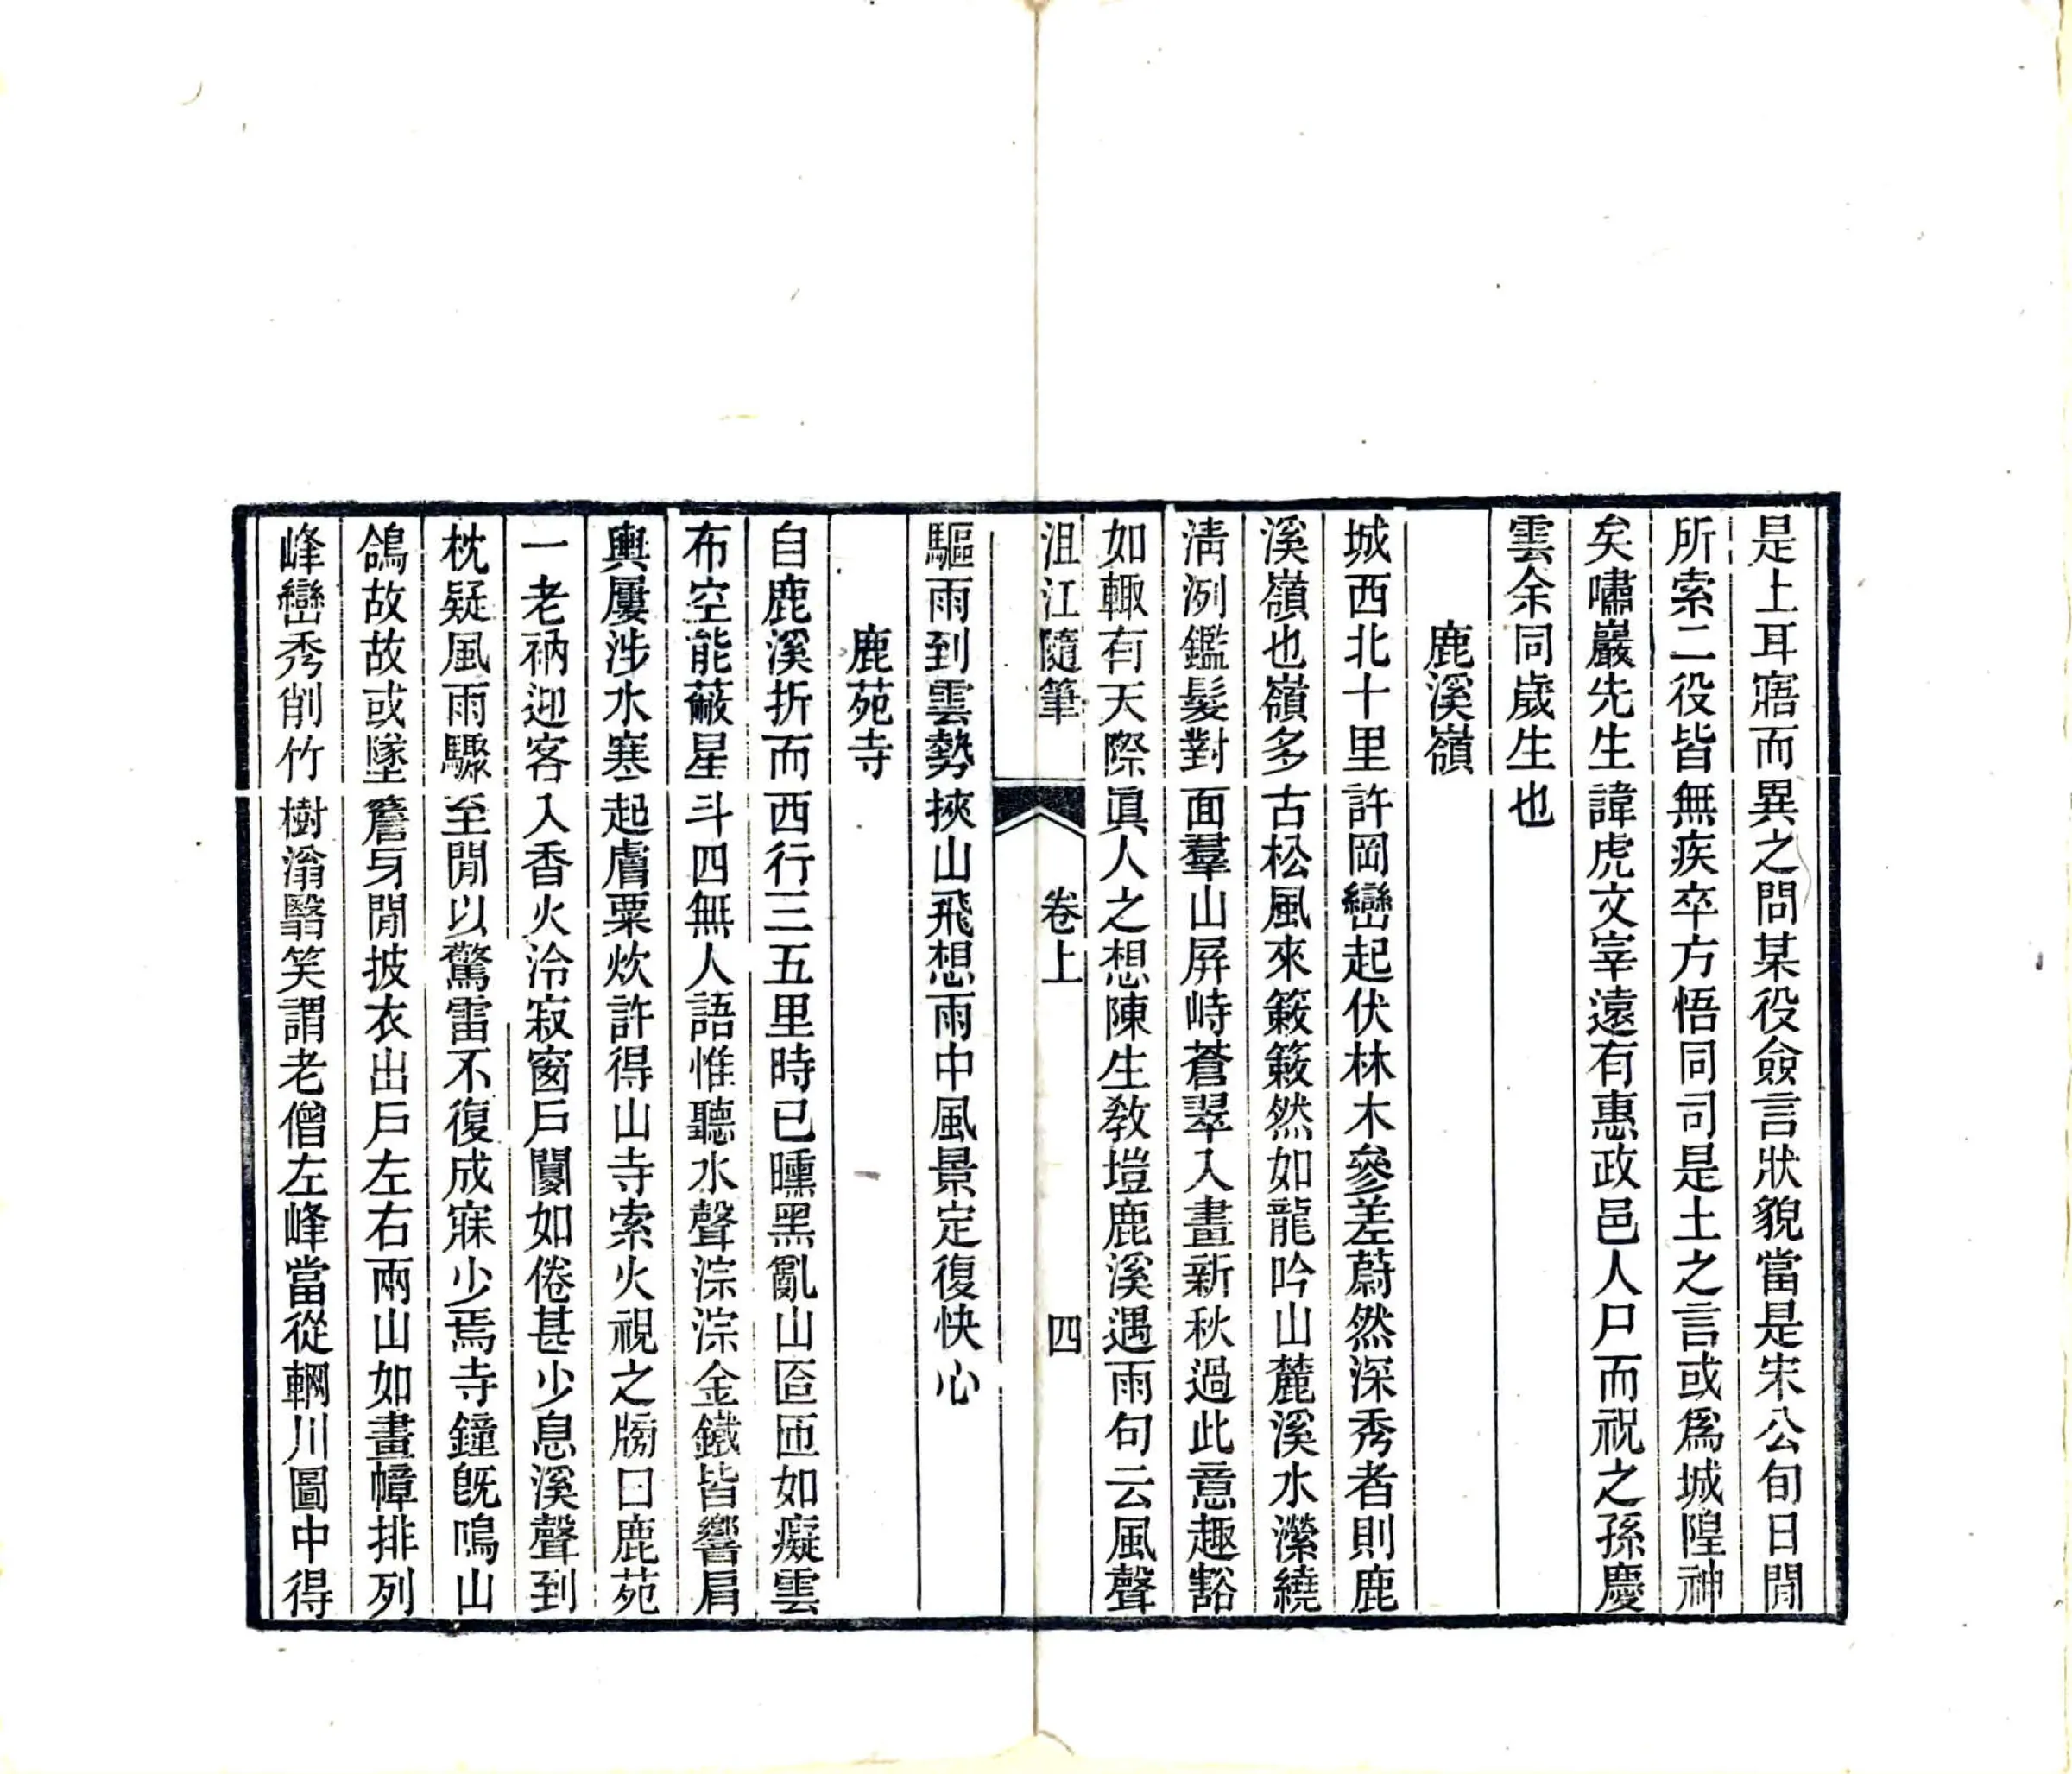 是上耳寤而異之問某役僉言狀貌當是宋公旬日閒
所索二役皆無疾卒方悟同司是土之言或爲城隍神
矣嘯巖先生諱虎文宰遠有惠政邑人尸而祝之孫慶
雲余同歲生也
鹿溪嶺
城西北十里許岡巒起伏林木參差蔚然深秀者則鹿
溪嶺也嶺多古松風來簌簌然如龍吟山麓溪水瀠繞
淸洌鑑髮對面羣山屏峙蒼翠入畫新秋過此意趣豁
如輙有天際眞人之想陳生敎塏鹿溪遇雨句云風聲
沮江隨筆 卷上 四
驅雨到雲勢挾山飛想雨中風景定復快心
鹿苑寺
自鹿溪折而西行三五里時已曛黑亂山匼匝如癡雲
布空能蔽星斗四無人語惟聽水聲淙淙金鐵皆響肩
輿屢涉水寒起膚粟炊許得山寺索火視之牓曰鹿苑
一老衲迎客入香火冷寂窗戶闃如倦甚少息溪聲到
枕疑風雨驟至閒以驚雷不復成寐少焉寺鐘旣鳴山
鴿故故或墜簷身閒披衣出戶左右兩山如畫幛排列
峰巒秀削竹樹滃翳笑謂老僧左峰當從輞川圖中得